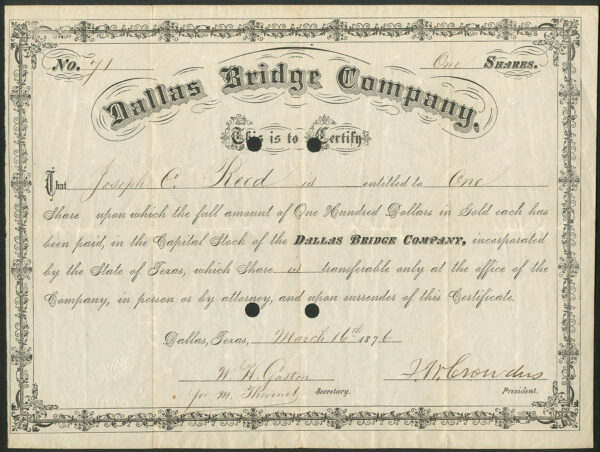 No. 71 One SHARES.
Dallas Bridge Company.
This is to Certify
That Joseph C. Reed is entitled to One
Share upon which the full amount of One Hundred Dollars in Gold each has
been paid, in the Capital Stock of the DALLAS BRIDGE COMPANY, incorporated
by the State of Texas, which Share is transferable only at the office of the
Company, in person or by attorney, and upon surrender of this Certificate.
Dallas, Texas, March 16th 1876
W. H. Gaston
Secretary. President.